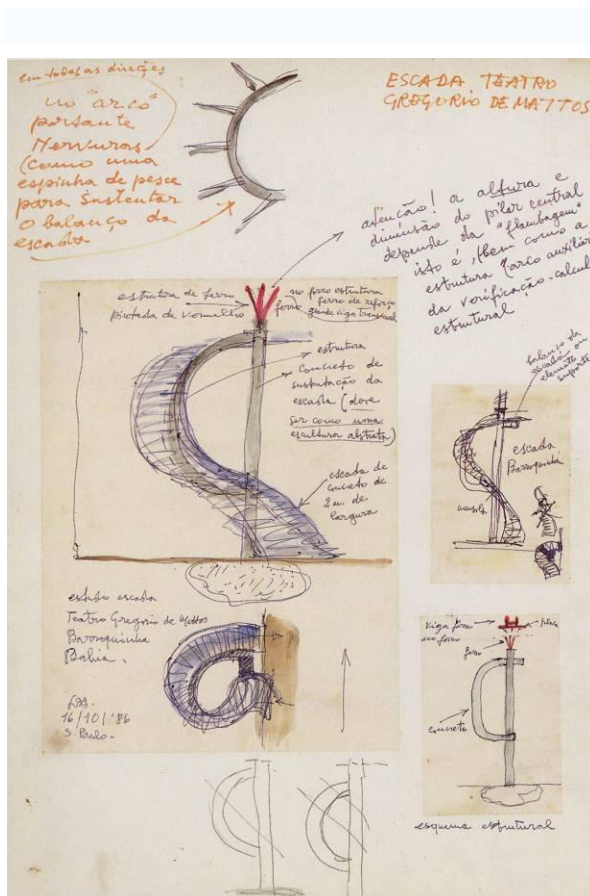 em todas as direções
no "arco"
portante
Nervuras
(como uma
espinha de pesce
para sustentar
o balanço da
escada
ESCADA TEATRO
GREGORIO DE MATTOS
atenção! a altura e
dimensão do pilar central
depende da "flambagem"
isto é, bem como a
estrutura "arco auxiliar
da verificação-calcul
estrutural
estrutura de ferro
pintada de vermelho
no forro estrutura
ferro de reforço
grande viga transversal
ferro
estrutura
concreto de
sustentação da
escada (deve
ser como uma
escultura abstrata)
escada de
concreto de
2 m. de
largura
balanço da
escada ou
elemento
suporte
escada
Barroquinha
estudo escada
Teatro Gregorio de Mattos
Barroquinha
Bahia.
16/10/'86
S. Paulo.
viga ferro
no forro
ferro
concreto
esquema estrutural